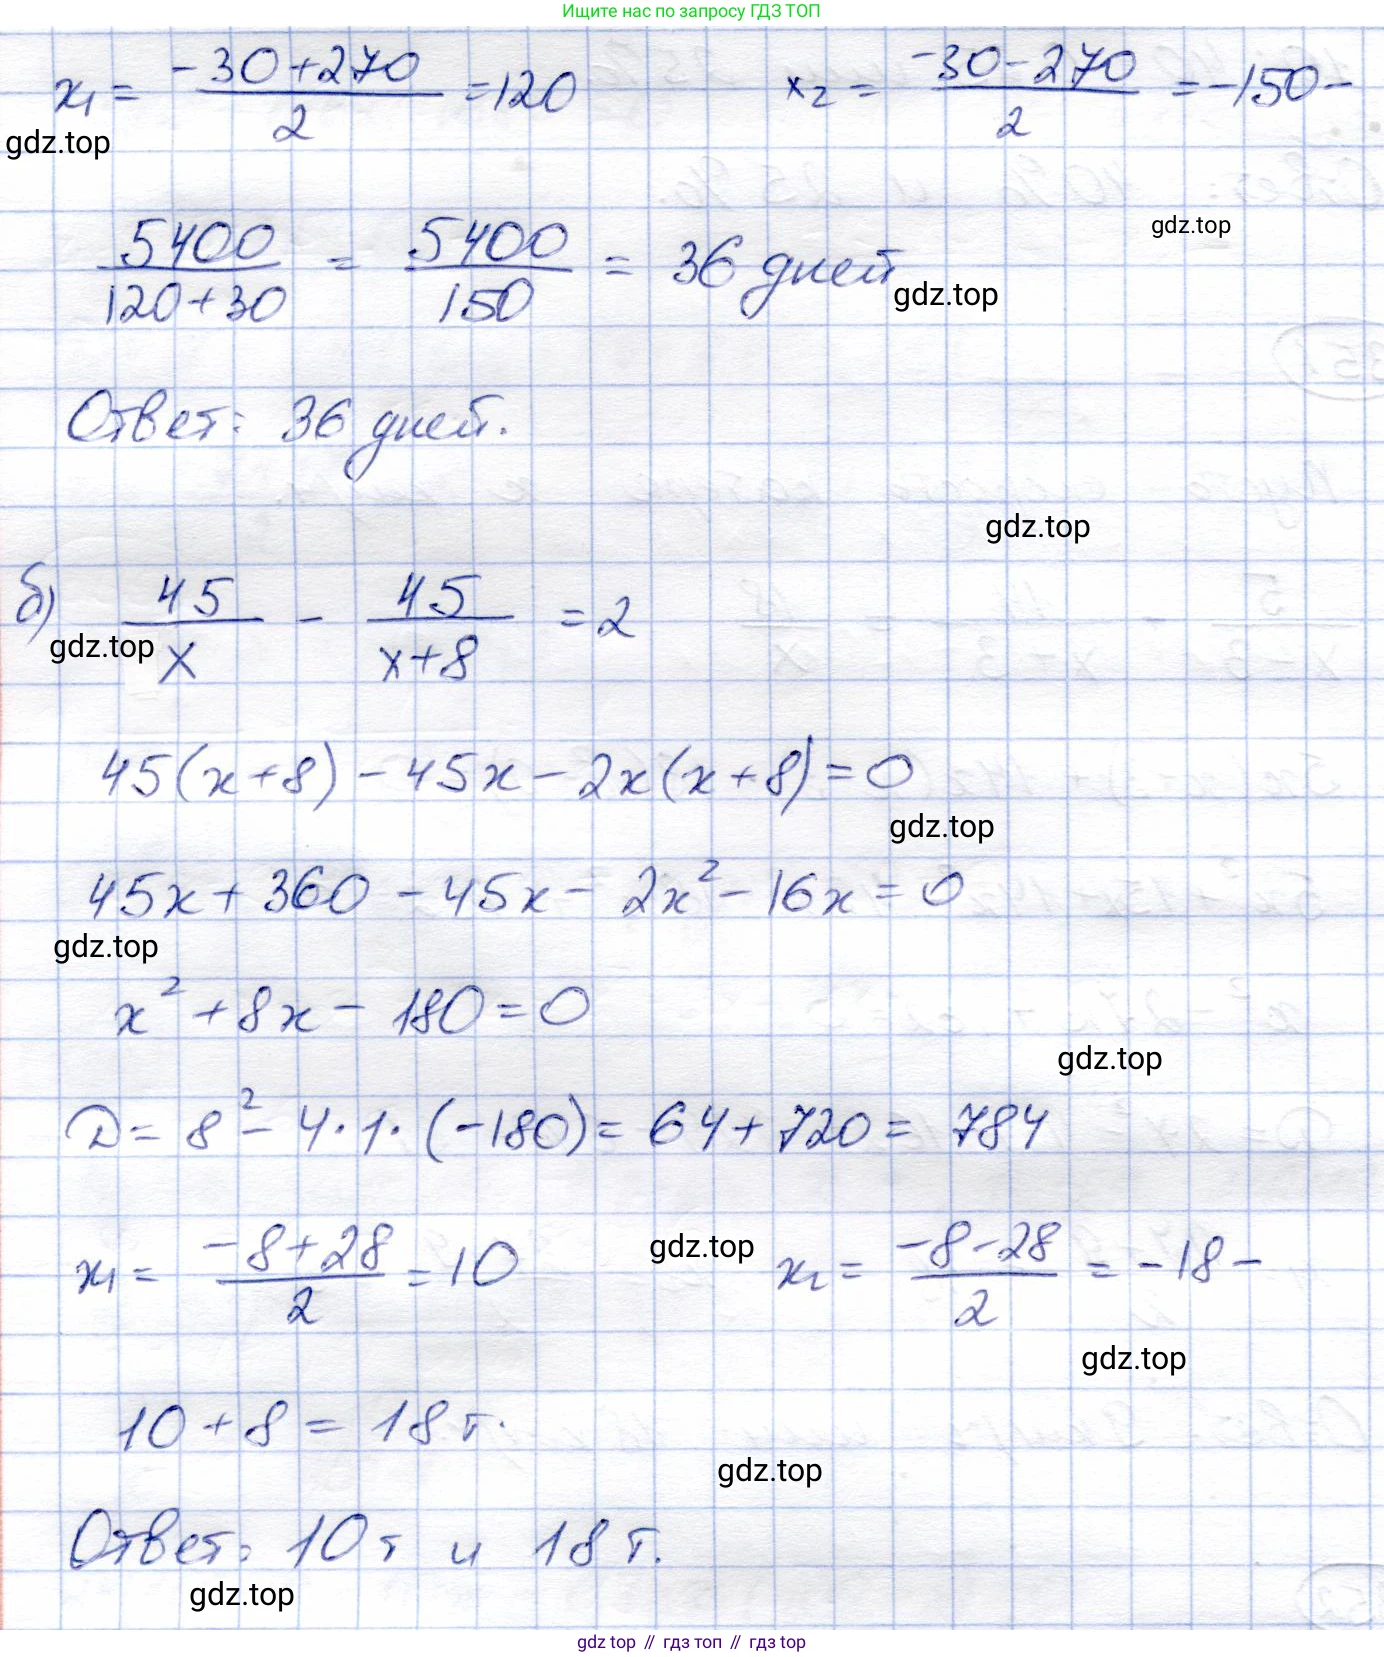 Ищите нас по запросу ГДЗ ТОП
x₁ = (-30+270)/2 = 120 x₂ = (-30-270)/2 = -150 -
gdz.top
gdz.top
5400/(120+30) = 5400/150 = 36 дней
gdz.top
Ответ: 36 дней.
gdz.top
б) 45/x - 45/(x+8) = 2
gdz.top
45(x+8) - 45x - 2x(x+8) = 0
gdz.top
45x + 360 - 45x - 2x² - 16x = 0
gdz.top
x² + 8x - 180 = 0
gdz.top
D = 8² - 4·1·(-180) = 64 + 720 = 784
x₁ = (-8+28)/2 = 10 gdz.top x₂ = (-8-28)/2 = -18 -
gdz.top
10 + 8 = 18 т.
gdz.top
Ответ: 10 т и 18 т.
gdz.top
gdz top // гдз топ // gdz top